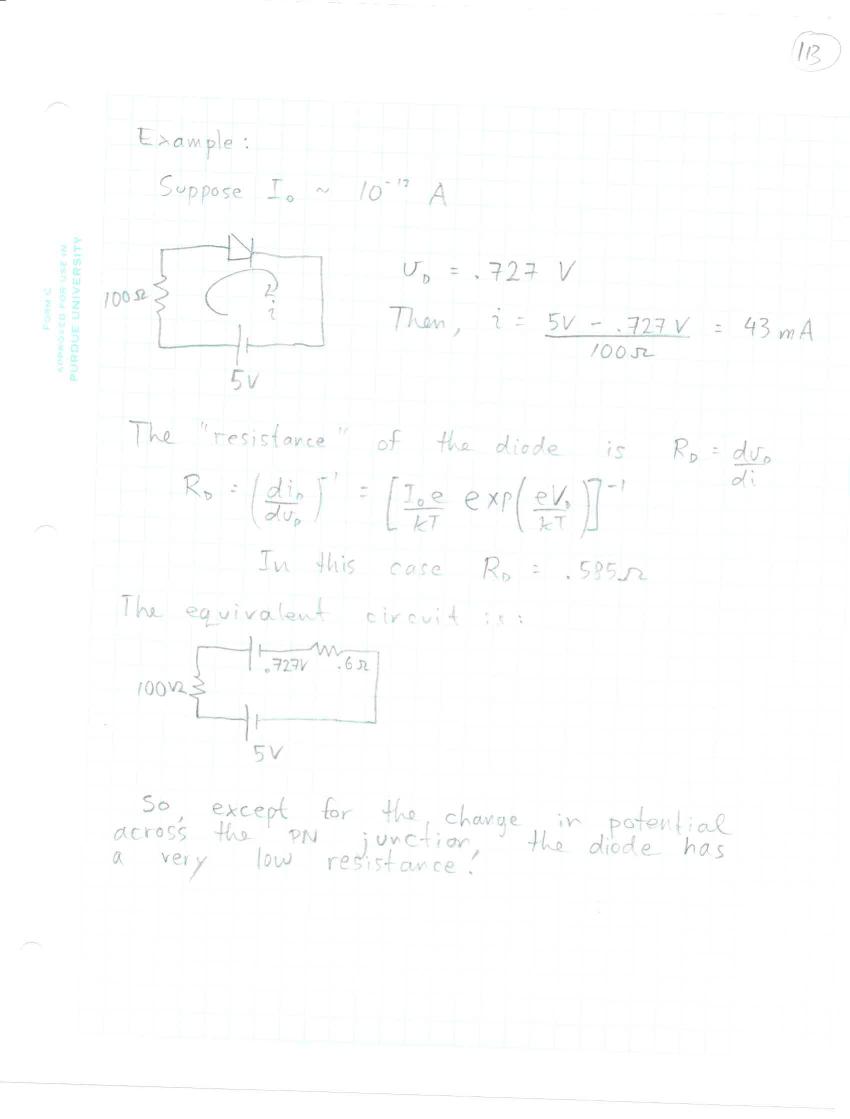 113
FORM C
APPROVED FOR USE IN
PURDUE UNIVERSITY
Example:
Suppose I₀ ~ 10⁻¹² A
100Ω
i
5V
υ_D = .727 V
Then, i = (5V - .727V)/(100Ω) = 43 mA
The "resistance" of the diode is R_D = dυ_D/di
R_D = (di_D/dυ_D)⁻¹ = [I₀e/kT exp(eV₀/kT)]⁻¹
In this case R_D = .585Ω
The equivalent circuit is:
.727V .6Ω
100Ω
5V
So, except for the change in potential
across the PN junction, the diode has
a very low resistance!